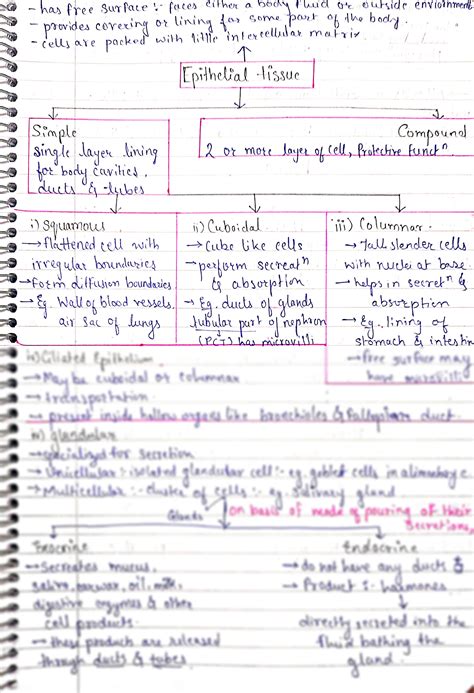 - has free surface :- faces either a body fluid or outside enviornment
- provides covering or lining for some part of the body.
- cells are packed with little intercellular matrix
Epithelial tissue
Simple
single layer lining
for body cavities,
ducts & tubes
Compound
2 or more layer of cell, Protective functⁿ
i) Squamous
→ flattened cell with
irregular boundaries
→ Form diffusion boundaries
→ Eg. Wall of blood vessels,
air sac of lungs
ii) Cuboidal
→ Cube like cells
→ perform secreatⁿ
& absorption
→ Eg. ducts of glands
tubular part of nephron
(PCT) has microvilli
iii) Columnar.
→ Tall slender cells
with nuclei at base
→ helps in secretⁿ &
absorption
→ Eg. lining of
stomach & intestin
→ free surface may
have microvilli
Ciliated Epithelium
→ May be cuboidal or columnar
→ transportation
→ present inside hollow organs like bronchioles & fallopian duct.
glandular
→ specialized for secretion
→ Unicellular :- isolated glandular cell :- eg. goblet cells in
→ Multicellular :- cluster of cells :- eg. salivary gland
Glands
on basis of mode of pouring of their
secretions,
Exocrine
→ Secretes mucus,
saliva, earwax, oil, milk,
digestive enzymes & other
cell products.
→ these product are released
through ducts & tubes
Endocrine
→ do not have any ducts &
→ Product :- hormones
directly secreted into the
fluid bathing the
gland.